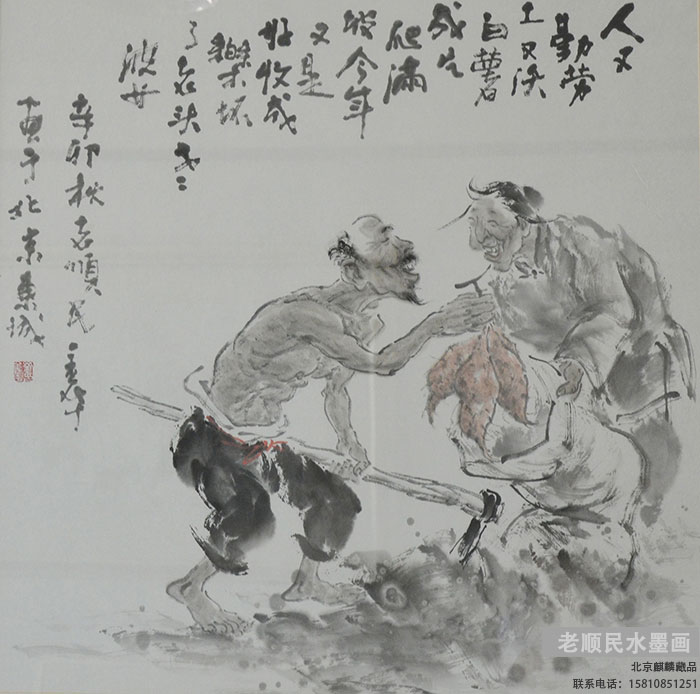 人又
勤劳
土又沃
白薯
成片
爬满
坡今年
又是
好收成
樂坏
了老头老
辛卯秋老順民
画于北京東城
老顺民水墨画
北京麒麟藏品
联系电话：15810851251